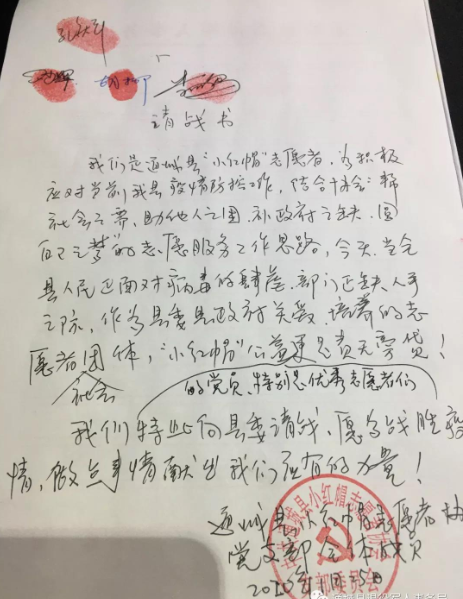 请战书
我们是通城县“小红帽”志愿者,为积极
应对当前我县疫情防控工作,结合协会“帮
社会之需,助他人之困,补政府之缺,圆
自己之梦”的志愿服务工作思路,今天,当全
县人民正面对病毒的肆虐,部门正缺人手
之际,作为县委县政府关爱、培养的志
愿者团体,“小红帽”公益更是责无旁贷!
社会
的党员、特别是优秀志愿者们
我们特此向县委请战,愿为战胜疫
情,做点事情献出我们应有的力量!
通城县小红帽志愿者协
党支部全体党员